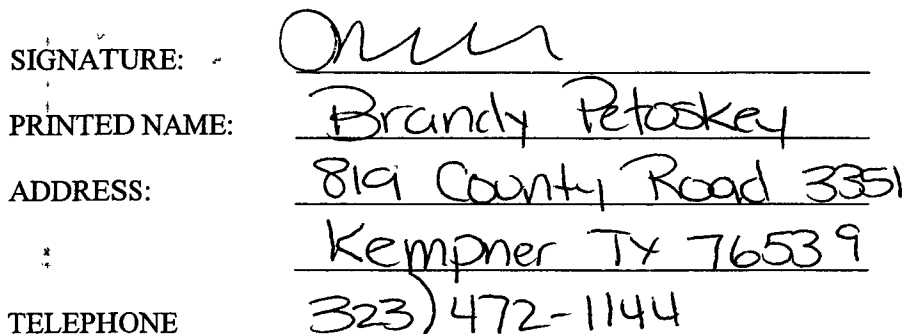 SIGNATURE:
PRINTED NAME: Brandy Petoskey
ADDRESS: 819 County Road 3351
Kempner Tx 76539
TELEPHONE 323) 472-1144